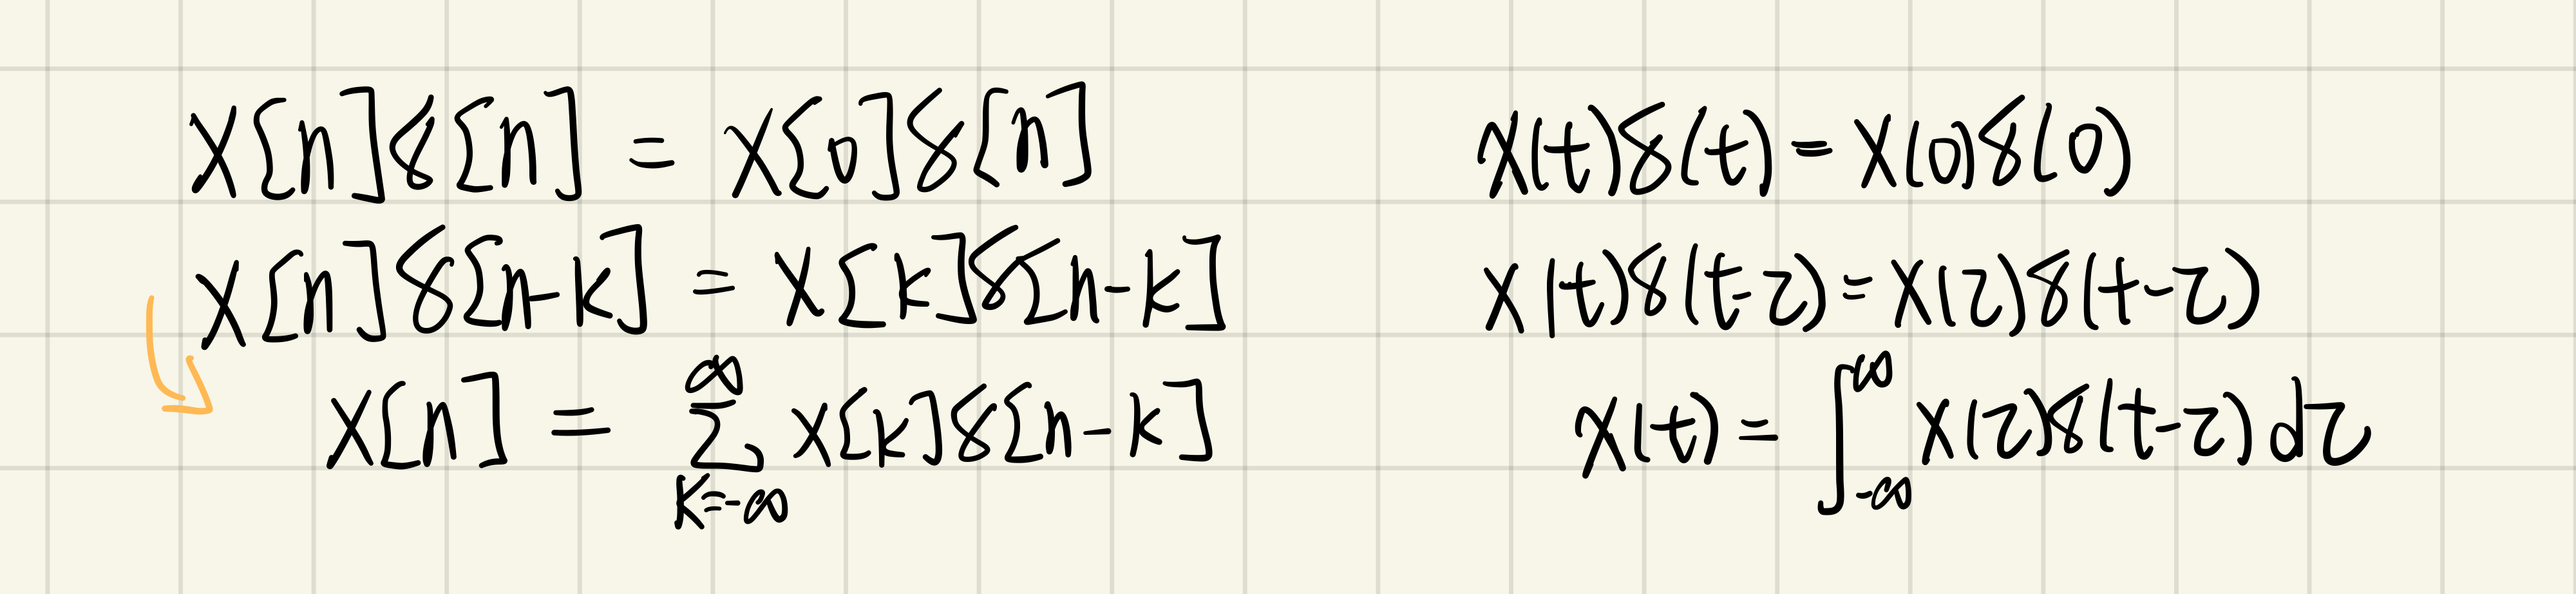 x[n]δ[n] = x[0]δ[n]
x[n]δ[n-k] = x[k]δ[n-k]
x[n] = ∑_{k=-∞}^{∞} x[k]δ[n-k]
x(t)δ(t) = x(0)δ(0)
x(t)δ(t-τ) = x(τ)δ(t-τ)
x(t) = ∫_{-∞}^{∞} x(τ)δ(t-τ)dτ